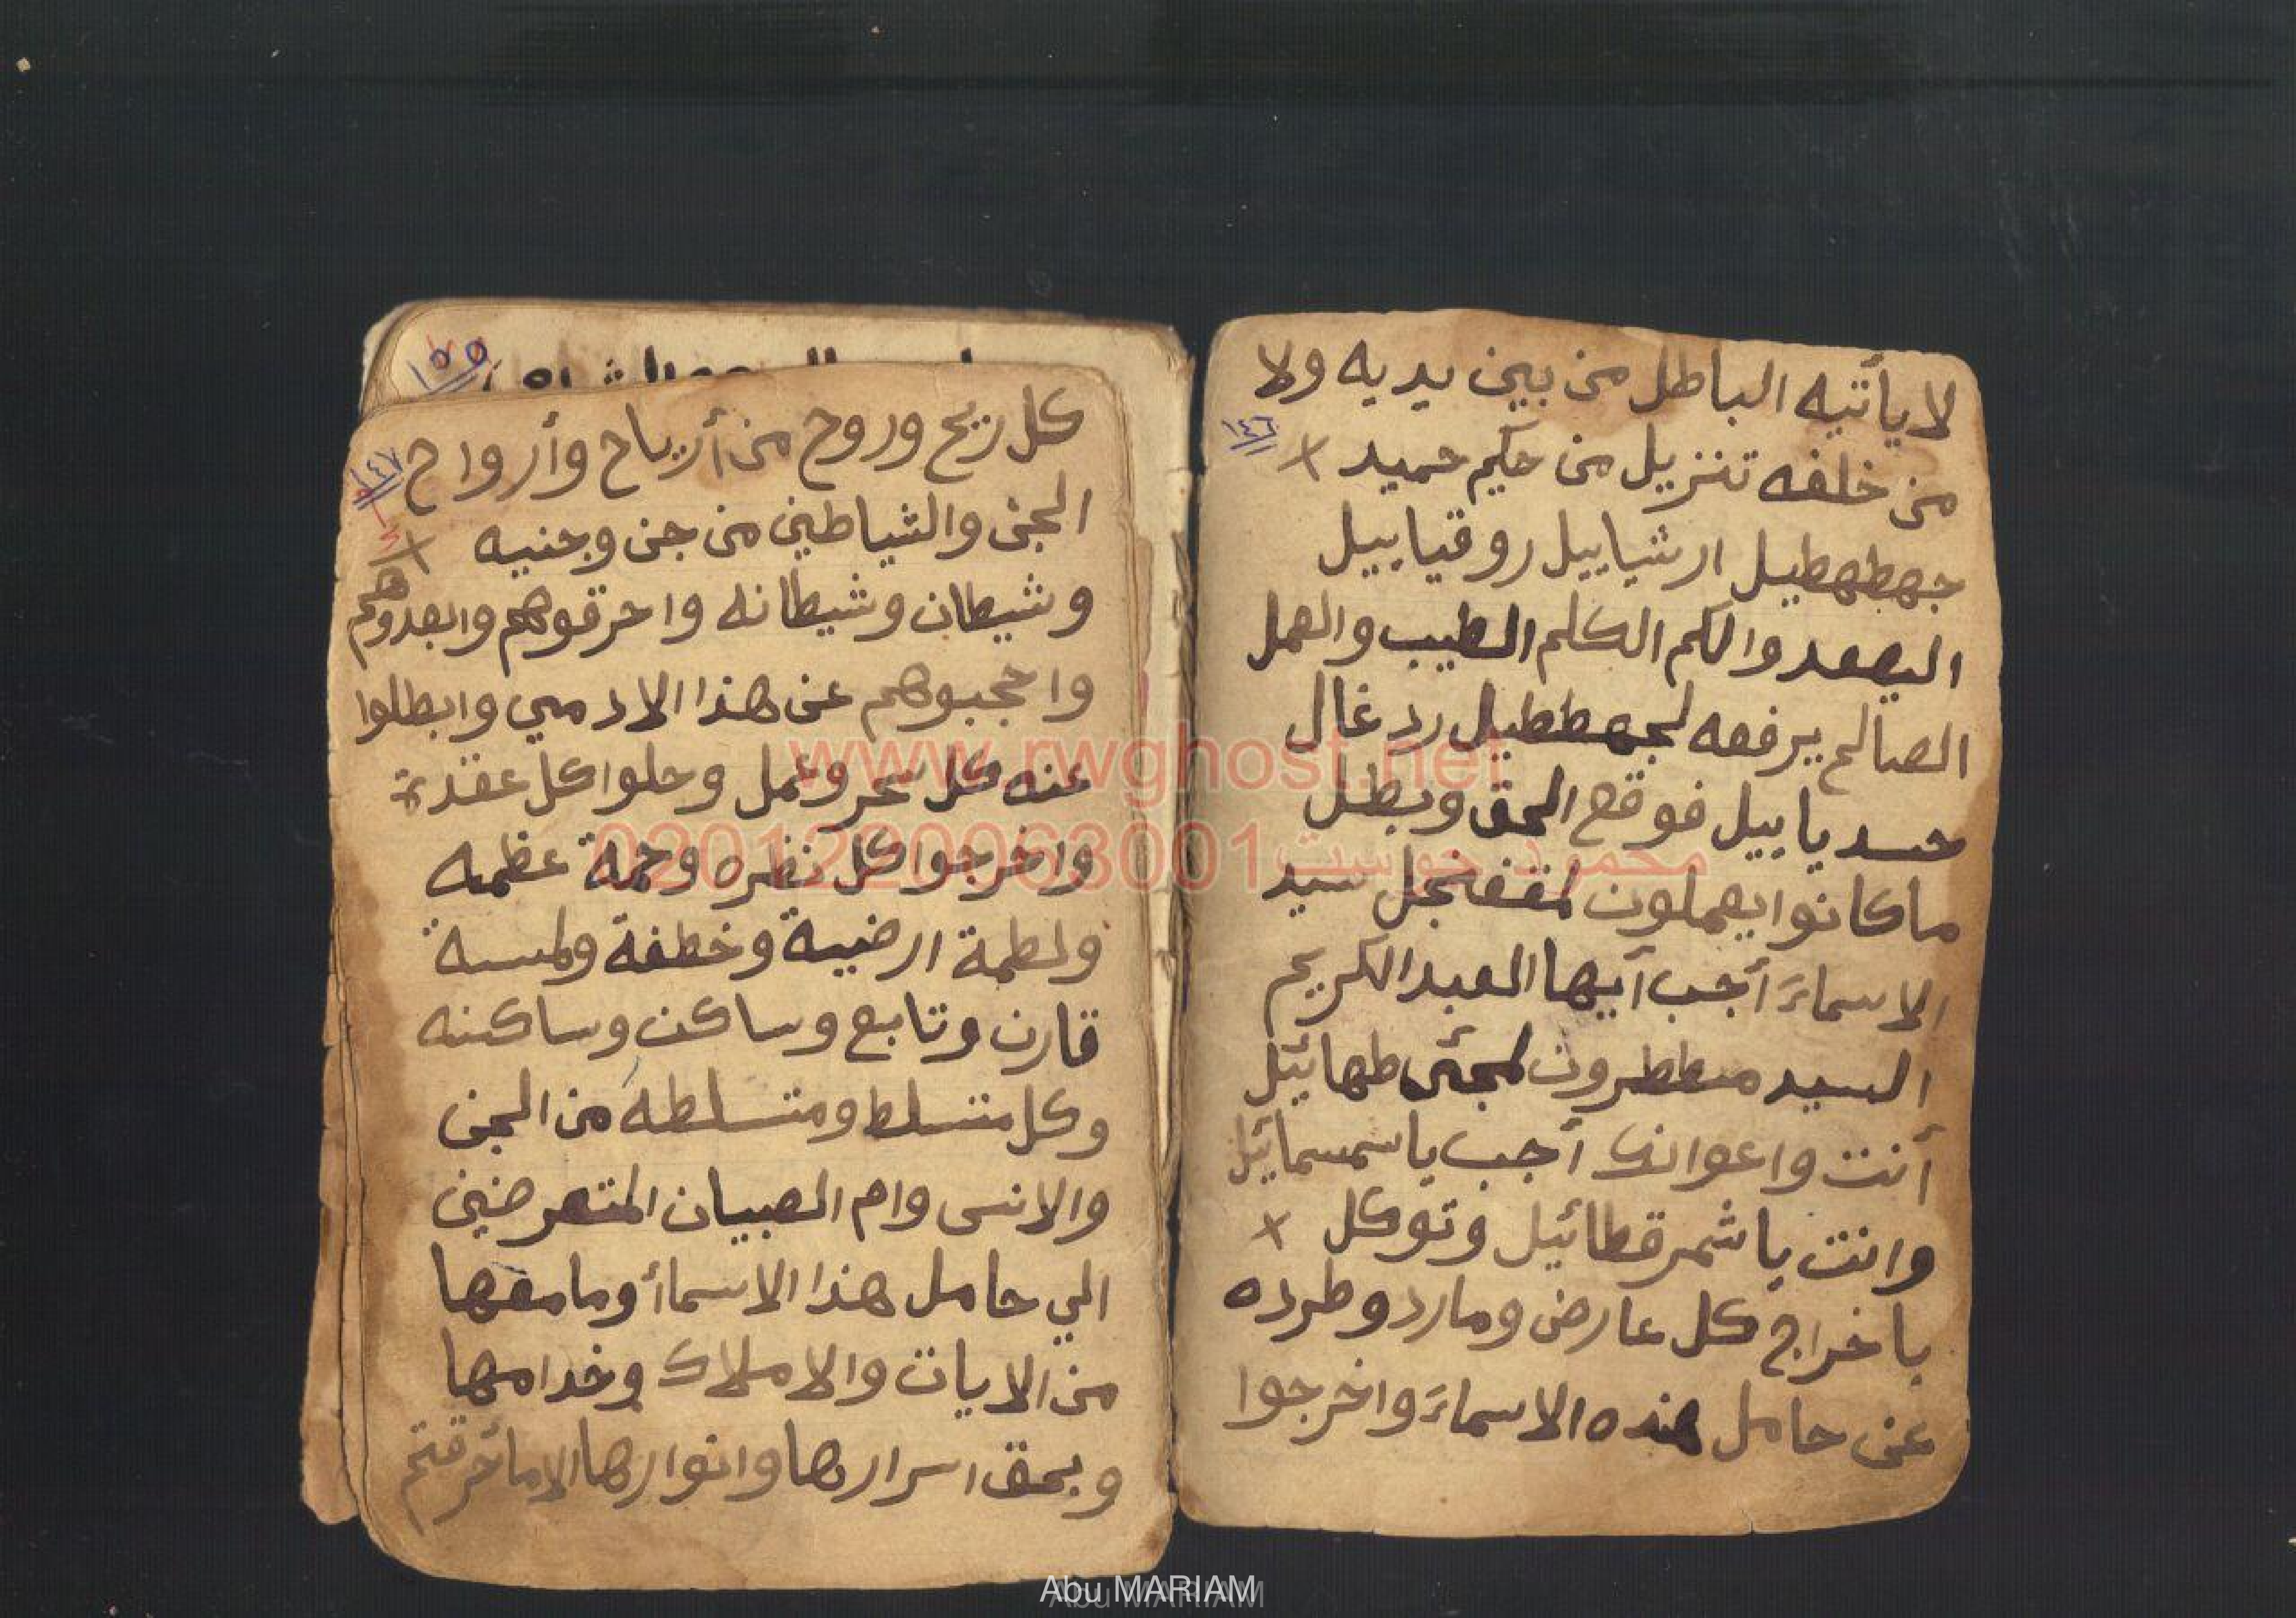 لا يأتيه الباطل من بين يديه ولا
١٤٦
من خلفه تنزيل من حكيم حميد ×
جهطهطيل ارشياييل روقياييل
اليصعدوا لكم الكلم الطيب والعمل
الصالح يرفعه لجهططيل رد غال
حسد ياييل فوقع الحق وبطل
ماكانوا يعملون سيد
الاسماء أجب أيها العبد الكريم
السيد مططرون طهائيل
أنت واعوانك أجب ياسمسمائيل
وانت ياشمرقطائيل وتوكل ×
باخراج كل عارض ومارد وطرده
عن حامل هذه الاسماء واخرجوا
١٥٥
كل ريح وروح من أرياح وأرواح
١٤٧
الجن والشياطين من جن وجنيه ×
وشيطان وشيطانه واحرقوهم وابعدوهم
واحجبوهم عن هذا الادمي وابطلوا
عنه كل سحر وعمل وحلوا كل عقدة
واخرجوا كل نظره وحمة عظمه
ولطمة ارضية وخطفة ولمسة
قارن وتابع وساكن وساكنه
وكل متسلط ومتسلطه من الجن
والانس وام الصبيان المتعرضين
الي حامل هذا الاسمأ ومامعها
من الايات والاملاك وخدامها
وبحق اسرارها وانوارها الاماأحرقتم
www.rwghost.net
محمود جوست 0201220063001
Abu MARIAM